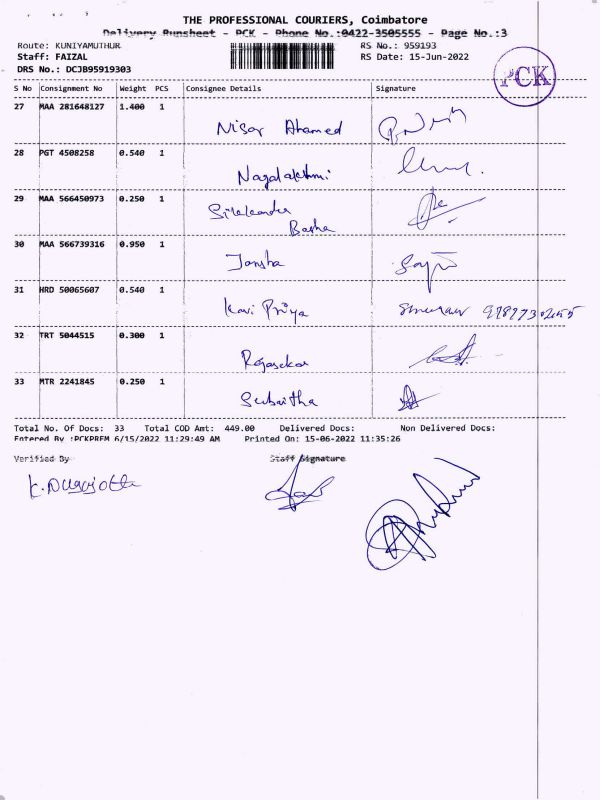 THE PROFESSIONAL COURIERS, Coimbatore
Delivery Runsheet - PCK - Phone No.:0422-3505555 - Page No.:3
Route: KUNIYAMUTHUR RS No.: 959193
Staff: FAIZAL RS Date: 15-Jun-2022
DRS No.: DCJB95919303
PCK
S No Consignment No Weight PCS Consignee Details Signature
27 MAA 281648127 1.400 1
Nisar Ahamed
28 PGT 4508258 0.540 1
Nagalakshmi
29 MAA 566450973 0.250 1
Basha
30 MAA 566739316 0.950 1
Jansha
31 HRD 50065607 0.540 1
Kavi Priya
32 TRT 5044515 0.300 1
Rajasekar
33 MTR 2241845 0.250 1
Subaitha
Total No. Of Docs: 33 Total COD Amt: 449.00 Delivered Docs: Non Delivered Docs:
Entered By :PCKPREM 6/15/2022 11:29:49 AM Printed On: 15-06-2022 11:35:26
Verified By Staff Signature